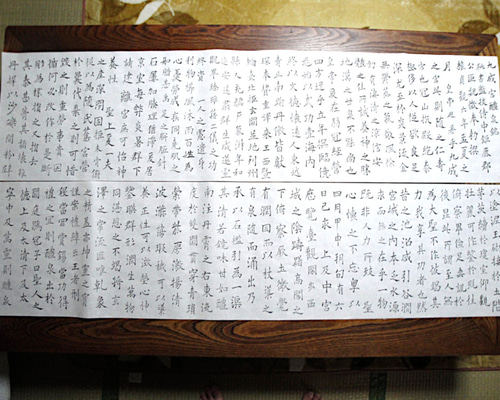 九成宮醴泉銘
秘書監檢校侍中鉅鹿郡
公臣魏徵奉勅撰
深尤至於炎景流金無
鬱蒸之氣微風徐動
有淒清之涼信安
體之佳所誠養神之勝
地漢之甘泉不能尚也
皇帝爰在弱冠經營
四方逮乎立年撫臨億
兆始以武功壹海內
終以文德懷遠人東越
青丘南踰丹徼皆獻
琛奉贄重譯來王西暨
輪臺北拒玄闕並地列州
縣人充編戶氣淑年和
邇安遠肅群生咸遂靈
貺畢臻雖藉二儀之功
終資一人之慮遺身
利物櫛風沐雨百姓為
心憂勞成疾同堯肌之
如腊甚禹足之胼胝針
石屢加腠理猶滯爰居
京室每弊炎暑群下
請建離宮庶可怡神
養性
之產深閉固拒未肯俯
從以為隨氏舊宮營
於曩代棄之則可惜
毀之則重勞事貴因
循何必改作於是斲
彫為樸損之又損去
其泰甚葺其頹壞雜
丹墀以沙礫間粉壁
以塗泥玉砌接於土
茨續於瓊室仰觀
壯麗可作鑒於既往
俯察卑儉足垂訓於
後昆此所謂至人無
為大聖不作彼竭其
力我享其功者也然
昔之池沼咸引谷澗
宮城之內本乏水源
求而無之在乎一物
既非人力所致聖
心懷之不忘粵以
四月甲申朔旬有六
日己亥上及中宮
歷覽臺觀閑步西
城之陰躊躇高閣之
下俯察厥土微覺
有潤因而以杖導之
有泉隨而涌出乃
承以石檻引為一渠
其清若鏡味甘如醴
南注丹霄之右東流
度於雙闕貫穿青瑣
縈帶紫房激揚清
波滌蕩瑕穢可以導
養正性可以澂瑩心神
鑒暎群形潤生萬物
同湛恩之不竭將玄
澤之常流匪唯乾象
之精蓋亦坤靈之寶
謹案禮緯云王者刑
殺當罪賞錫當功得
禮之宜則醴泉出於
闕庭鶡冠子曰聖人之
德上及太清下及太
寧中及萬靈則醴泉